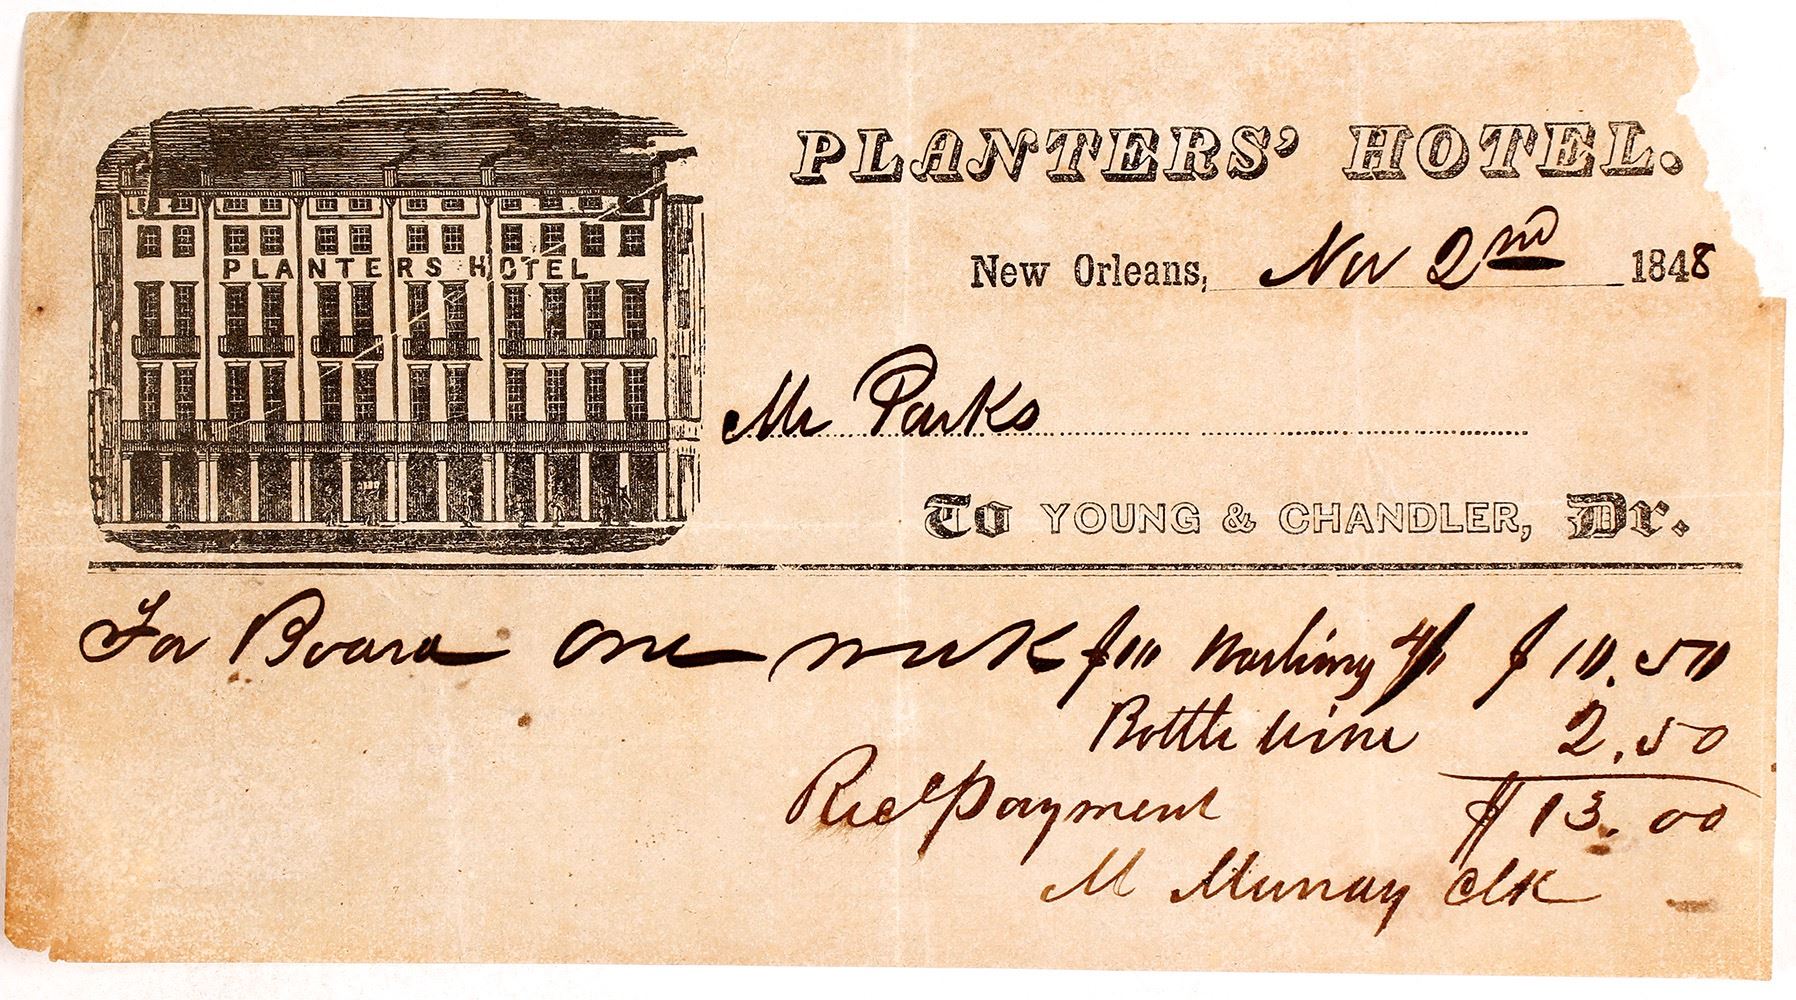 PLANTERS' HOTEL.
PLANTERS HOTEL
New Orleans, Nov 2nd 1848
Mr Parks
To YOUNG & CHANDLER, Dr.
For Board one week $10 Washing 4/ $10.50
Bottle wine 2.50
Recd Payment $13.00
M Murray Clk